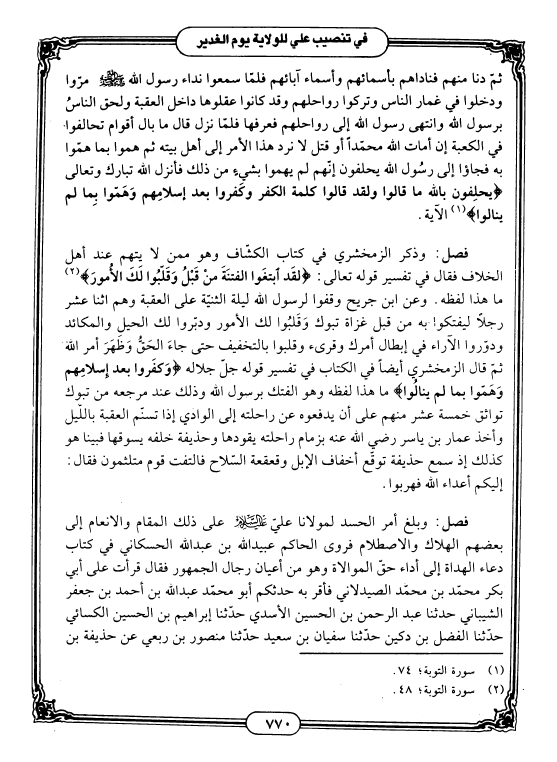 في تنصيب علي للولاية يوم الغدير
ثمّ دنا منهم فناداهم بأسمائهم وأسماء آبائهم فلمّا سمعوا نداء رسول الله ﷺ مرّوا
ودخلوا في غمار الناس وتركوا رواحلهم وقد كانوا عقلوها داخل العقبة ولحق الناسُ
برسول الله وانتهى رسول الله إلى رواحلهم فعرفها فلمّا نزل قال ما بال أقوام تحالفوا
في الكعبة إن أمات الله محمّداً أو قتل لا نرد هذا الأمر إلى أهل بيته ثم هموا بما همّوا
به فجاؤا إلى رسُول الله يحلفون إنّهم لم يهموا بشيءٍ من ذلك فأنزل الله تبارك وتعالى
﴿يحلفون بالله ما قالوا ولقد قالوا كلمة الكفر وكَفروا بعد إسلامِهم وهَمّوا بِما لم
ينالوا﴾(١) الآية .
فصل : وذكر الزمخشري في كتاب الكشّاف وهو ممن لا يتهم عند أهل
الخلاف فقال في تفسير قوله تعالى: ﴿لقَد ٱبتغَوا الفتنَةَ منْ قَبْلُ وَقَلَّبُوا لَكَ الأُمورَ﴾(٢)
ما هذا لفظه . وعن ابن جريح وقفوا لرسول الله ليلة الثنيّة على العقبة وهم اثنا عشر
رجلاً ليفتكوا به من قبل غزاة تبوك وَقَلبُوا لك الأمور ودبّروا لك الحيل والمكائد
ودوروا الآراء في إبطال أمرك وقرىء وقلبوا بالتخفيف حتى جاءَ الحَقُّ وَظَهَرَ أمر الله
ثمّ قال الزمخشري أيضاً في الكتاب في تفسير قوله جلّ جلاله ﴿وَكَفروا بعد إسلامِهم
وَهَمّوا بما لم ينالُوا﴾ ما هذا لفظه وهو الفتك برسول الله وذلك عند مرجعه من تبوك
تواثق خمسة عشر منهم على أن يدفعوه عن راحلته إلى الوادي إذا تسنّم العقبة باللّيل
وأخذ عمار بن ياسر رضي الله عنه بزمام راحلته يقودها وحذيفة خلفه يسوقها فبينا هو
كذلك إذ سمع حذيفة توقّع أخفاف الإبل وقعقعة السّلاح فالتفت قوم متلثمون فقال:
إليكم أعداء الله فهربوا .
فصل : وبلغ أمر الحسد لمولانا عليّ عليه السلام على ذلك المقام والانعام إلى
بعضهم الهلاك والاصطلام فروى الحاكم عبيدالله بن عبدالله الحسكاني في كتاب
دعاء الهداة إلى أداء حقّ الموالاة وهو من أعيان رجال الجمهور فقال قرأت على أبي
بكر محمّد بن محمّد الصيدلاني فأقر به حدثكم أبو محمد عبدالله بن أحمد بن جعفر
الشيباني حدثنا عبد الرحمن بن الحسين الأسدي حدّثنا إبراهيم بن الحسين الكسائي
حدّثنا الفضل بن دكين حدّثنا سفيان بن سعيد حدّثنا منصور بن ربعي عن حذيفة بن
(١) سورة التوبة؛ ٧٤ .
(٢) سورة التوبة؛ ٤٨ .
٧٧٠